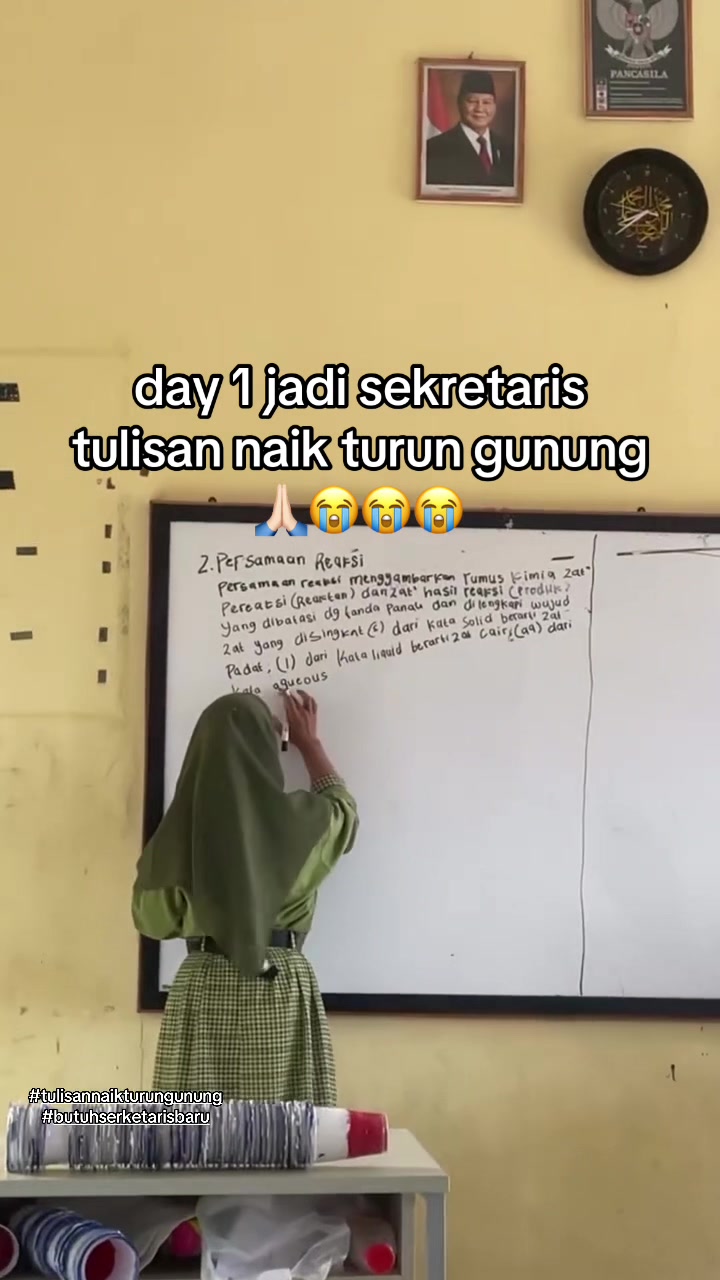 PANCASILA
day 1 jadi sekretaris
tulisan naik turun gunung
🙏🏻😭😭😭
2. Persamaan Reaksi
Persamaan reaksi menggambarkan rumus kimia zat"
Pereaksi (Reaktan) dan zat" hasil reaksi (Produk)
Yang dibatasi dg tanda Panah dan dilengkapi wujud
zat yang disingkat (s) dari kata solid berarti zat
Padat, (l) dari kata liquid berarti zat cair, (aq) dari
kata aqueous
#tulisannaikturungunung
#butuhserketarisbaru